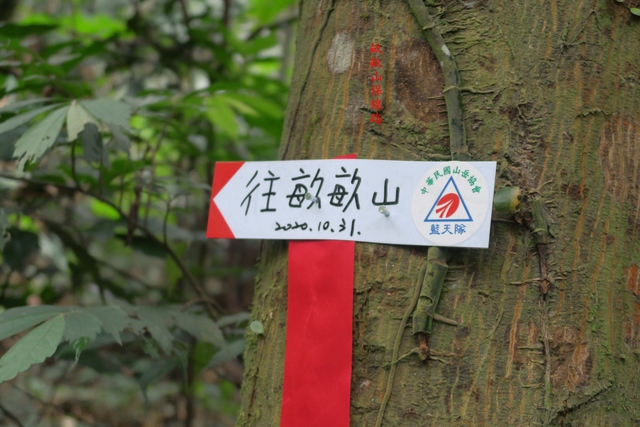 往畝畝山
2020.10.31.
中華民國山岳協會
藍天隊